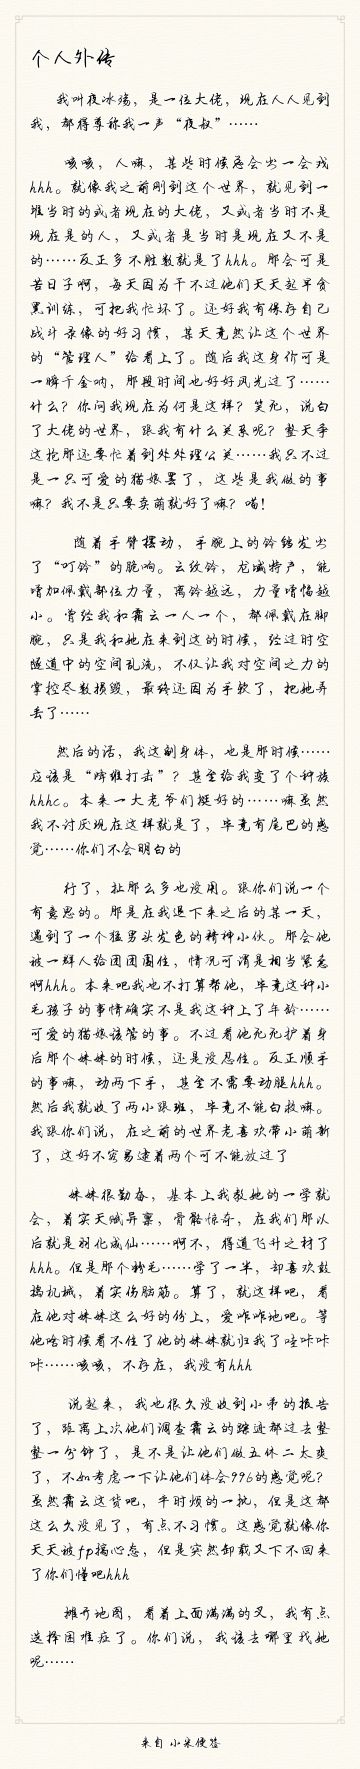 个人外传
我叫夜冰殇，是一位大佬，现在人人见到
我，都得尊称我一声“夜叔”……
咳咳，人嘛，某些时候总会出一会戏
hhh。就像我之前刚到这个世界，就见到一
堆当时的或者现在的大佬，又或者当时不是
现在是的人，又或者是当时是现在又不是
的……反正多不胜数就是了hhh。那会可是
苦日子啊，每天因为干不过他们天天起早贪
黑训练，可把我忙坏了。还好我有保存自己
战斗录像的好习惯，某天竟然让这个世界
的“管理人”给看上了。随后我这身价可是
一瞬千金呐，那段时间也好好风光过了……
什么？你问我现在为何是这样？笑死，说白
了大佬的世界，跟我有什么关系呢？整天争
这抢那还要忙着到处处理公关……我只不过
是一只可爱的猫娘罢了，这些是我做的事
嘛？我不是只要卖萌就好了嘛？喵！
随着手臂摆动，手腕上的铃铛发出
了“叮铃”的脆响。云纹铃，龙域特产，能
增加佩戴部位力量，离铃越远，力量增幅越
小。曾经我和霜云一人一个，都佩戴在脚
腕，只是我和她在来到这的时候，经过时空
隧道中的空间乱流，不仅让我对空间之力的
掌控尽数损毁，最终还因为手软了，把她弄
丢了……
然后的话，我这副身体，也是那时候……
应该是“降维打击”？甚至给我变了个种族
hhhc。本来一大老爷们挺好的……嘛虽然
我不讨厌现在这样就是了，毕竟有尾巴的感
觉……你们不会明白的
行了，扯那么多也没用。跟你们说一个
有意思的。那是在我退下来之后的某一天，
遇到了一个猛男头发色的精神小伙。那会他
被一群人给团团围住，情况可谓是相当紧急
啊hhh。本来吧我也不打算帮他，毕竟这种小
毛孩子的事情确实不是我这种上了年龄……
可爱的猫娘该管的事。不过看他死死护着身
后那个妹妹的时候，还是没忍住。反正顺手
的事嘛，动两下手，甚至不需要动腿hhh。
然后我就收了两小跟班，毕竟不能白救嘛。
我跟你们说，在之前的世界老喜欢带小萌新
了，这好不容易逮着两个可不能放过了
妹妹很勤奋，基本上我教她的一学就
会，着实天赋异禀，骨骼惊奇，在我们那以
后就是羽化成仙……啊不，得道飞升之材了
hhh。但是那个粉毛……学了一半，却喜欢鼓
捣机械，着实伤脑筋。算了，就这样吧，看
在他对妹妹这么好的份上，爱咋咋地吧。等
他啥时候看不住了他的妹妹就归我了哇咔咔
咔……咳咳，不存在，我没有hhh
说起来，我也很久没收到小弟的报告
了，距离上次他们调查霜云的踪迹都过去整
整一分钟了，是不是让他们做五休二太爽
了，不如考虑一下让他们体会996的感觉呢？
虽然霜云这货吧，平时烦的一批，但是这都
这么久没见了，有点不习惯。这感觉就像你
天天被fp搞心态，但是突然卸载又下不回来
了你们懂吧hhh
摊开地图，看着上面满满的叉，我有点
选择困难症了。你们说，我该去哪里找她
呢……
来自 小米便签